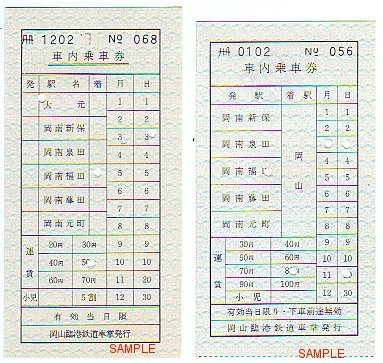 冊 1202 № 068
車内乗車券
発 駅 名 着 月 日
大 元 1 1
岡南新保 2 2
3 3
岡南泉田 4 4
岡南福田 5 5
6 6
岡南藤田 7 7
岡南元町 8 8
運賃 20円 30円 9 9
40円 50 10 10
60円 70円 11 20
小児 5割 12 30
有効当日限
岡山臨港鉄道車掌発行
SAMPLE
冊 0102 № 056
車内乗車券
発 駅 着 駅 月 日
岡南新保 1 1
2 2
岡南泉田 岡山
4 4
岡南福田 5 5
6 6
岡南藤田 7 7
岡南元町 8 8
運賃 30円 40円 9 9
50円 60円 10 10
70円 80 11
90円 100円
小 児 12 30
有効当日限り・下車前途無効
岡山臨港鉄道車掌発行
SAMPLE